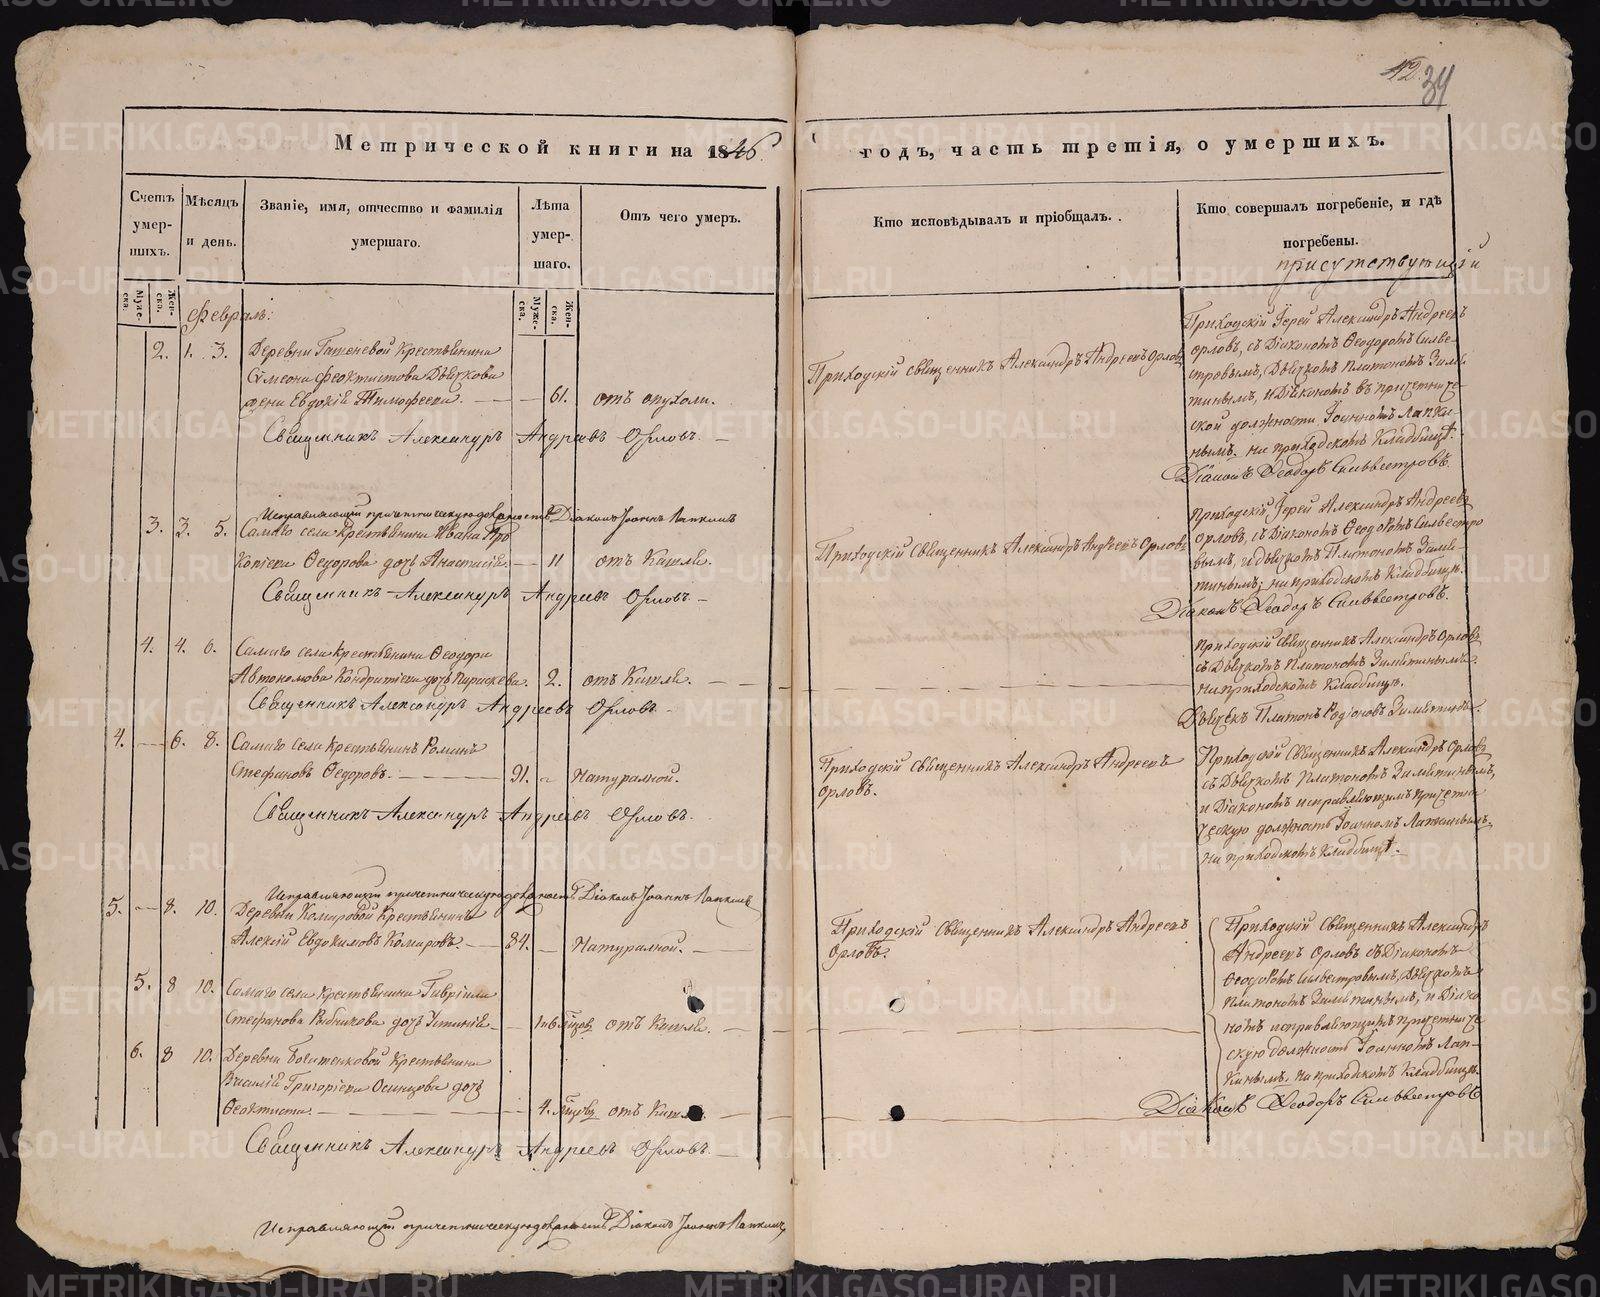 42. 34
Метрической книги на 1846 годъ, часть третія, о умершихъ.
Счетъ умершихъ.
Мѣсяцъ и день.
Званіе, имя, отчество и фамилія умершаго.
Лѣта умершаго.
Отъ чего умеръ.
Кто исповѣдывалъ и пріобщалъ.
Кто совершалъ погребеніе, и гдѣ погребены.
присутствующій
Муже-ска.
Жен-ска.
Муже-ска.
Жен-ска.
Февраль:
2. 1. 3. Деревни Крестьянина
Сѵмеона Феоктистова
жена Евдокія Тимофеева. — — 61. отъ опухоли.
Священникъ Александръ Андреевъ Орловъ. —
Приходскій священникъ Александръ Андреевъ Орловъ
Приходскій Іерей Александръ Андреевъ
Орловъ, съ Діакономъ Ѳеодоромъ Сильве-
стровымъ, Дьячкомъ Платономъ
и Діакономъ въ причетниче-
ской должности Іоанномъ Лапки-
нымъ. на приходскомъ Кладбищѣ.
Діаконъ Ѳеодоръ Сильвестровъ.
Исправляющій причетническую должность Діаконъ Іоаннъ Лапкинъ
3. 3. 5. Самаго села крестьянина Ивана Про
копіева Ѳедорова дочь Анастасія. — 11 отъ Кашля.
Священникъ Александръ Андреевъ Орловъ. —
Приходскій Священникъ Александръ Андреевъ Орловъ
Приходскій Іерей Александръ Андреевъ
Орловъ, съ Діакономъ Ѳеодоромъ Сильвестро
вымъ, и дьячкомъ Платономъ
на приходскомъ Кладбищѣ.
Діаконъ Ѳеодоръ Сильвестровъ.
4. 4. 6. Самаго села крестьянина Ѳеодора
Автономова дочь Параскева. 2. отъ Кашля. —
Священникъ Александръ Андреевъ Орловъ.
Приходскій Священникъ Александръ Орловъ
съ Дьячкомъ Платономъ
на приходскомъ Кладбищѣ.
Дьячекъ Платонъ Родіоновъ
4. — 6. 8. Самаго села крестьянинъ Романъ
Стефановъ Ѳедоровъ. — 91. — Натуральной.
Священникъ Александръ Андреевъ Орловъ.
Приходскій Священникъ Александръ Андреевъ
Орловъ.
Приходскій Священникъ Александръ Орловъ
съ Дьячкомъ Платономъ
и Діакономъ исправляющимъ причетни
ческую должность Іоанномъ Лапкинымъ.
на приходскомъ Кладбищѣ.
Исправляющій причетническую должность Діаконъ Іоаннъ Лапкинъ
5. — 8. 10. Деревни Комаровой Крестьянинъ
Алексій Евдокимовъ Комаровъ. — 84. — Натуральной. —
Приходскій Священникъ Александръ Андреевъ
Орловъ.
Приходскій Священникъ Александръ
Андреевъ Орловъ съ Діакономъ
Ѳеодоромъ Сильвестровымъ, Дьячкомъ
Платономъ и Діако
номъ исправляющимъ причетниче
скую должность Іоанномъ Лап-
кинымъ. на приходскомъ Кладбищѣ.
Діаконъ Ѳеодоръ Сильвестровъ
5. 8 10. Самаго села крестьянина Гавріила
Стефанова дочь Устинія — 1 и 6 мѣсяцовъ отъ Кашля. —
6. 8 10. Деревни Крестьянина
Василія Григоріева Осинцова дочь
Ѳеоктиста. — 4. мѣсяцовъ отъ Кашля. —
Священникъ Александръ Андреевъ Орловъ. —
Исправляющій причетническую должность Діаконъ Іоаннъ Лапкинъ
METRIKI.GASO-URAL.RU